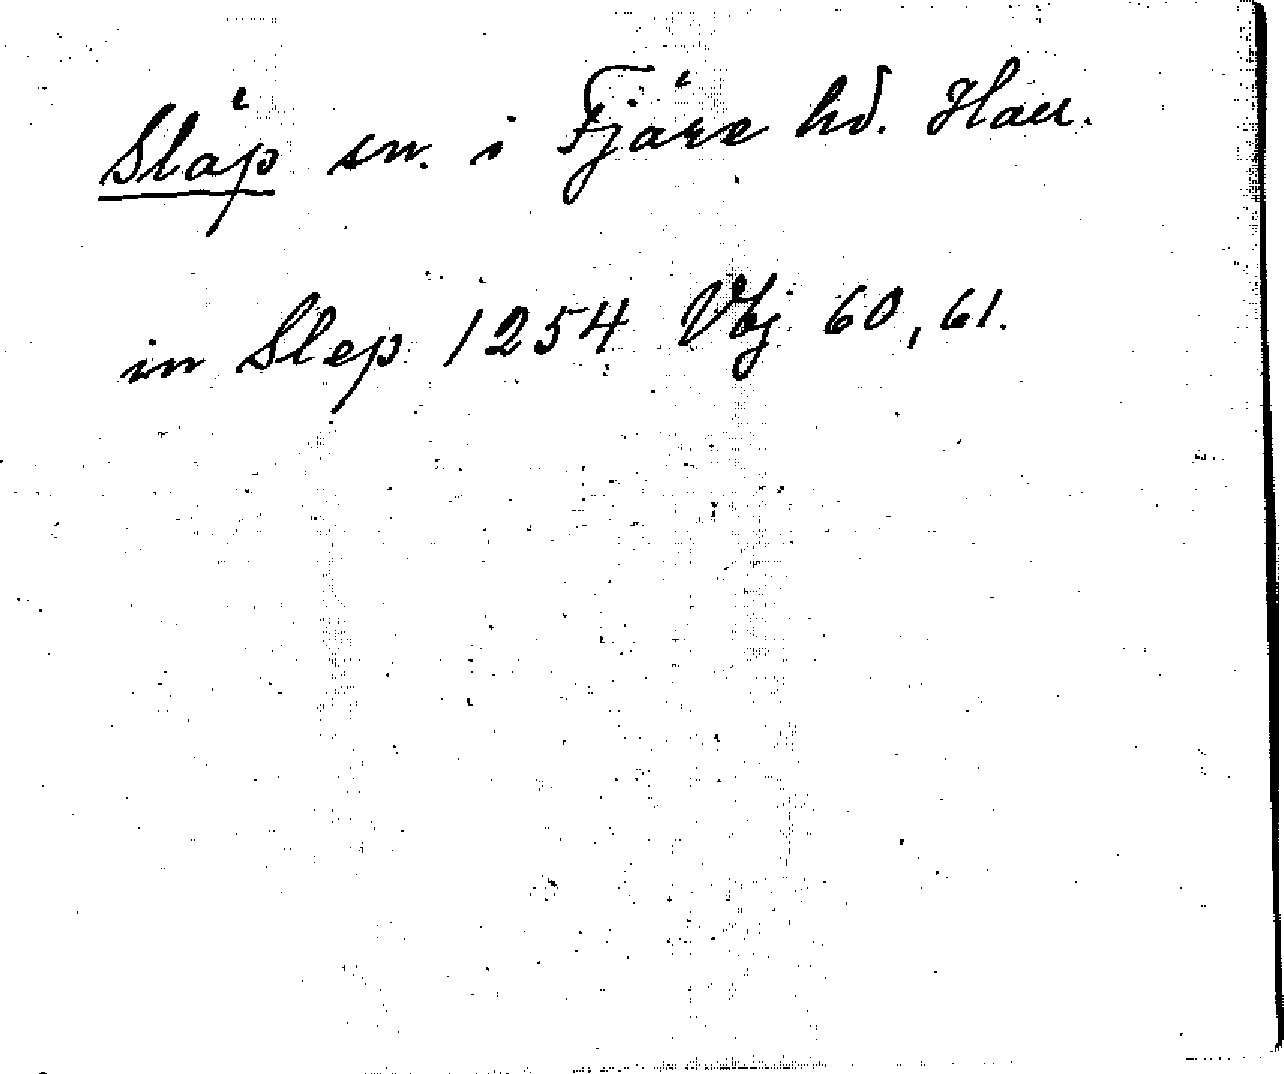 Släp sn. i Fjäre hd. Hall.
in Slep 1254 Vbj 60, 61.